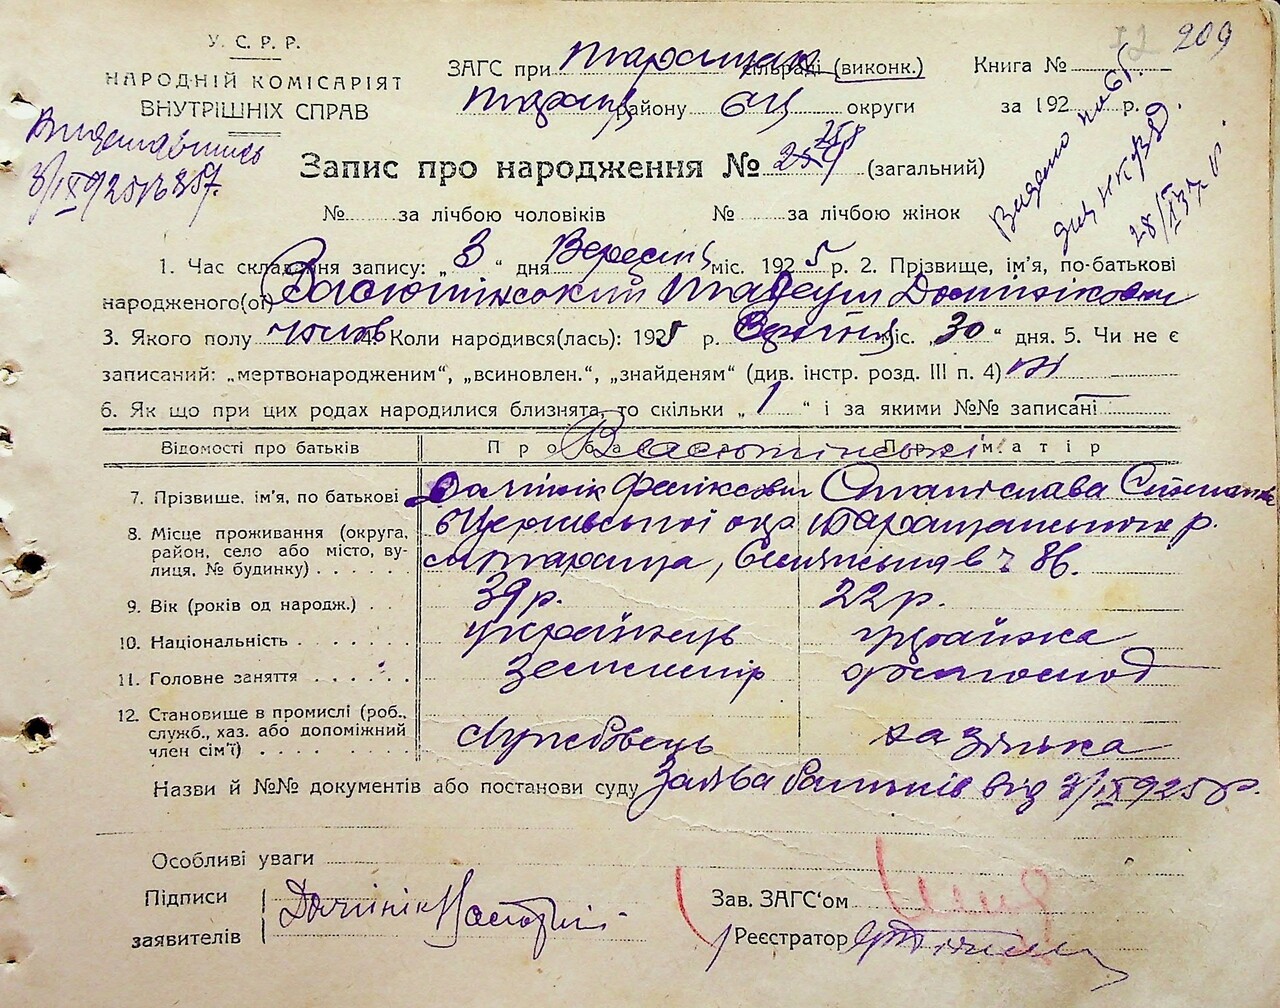 209
У. С. Р. Р.
НАРОДНІЙ КОМІСАРІЯТ
ВНУТРІШНІХ СПРАВ
ЗАГС при сільраді (виконк.)
району БЦ округи
Книга №
за 192 р.
3/IX 925
28/IX 37 р.
Запис про народження № 258 (загальний)
№ за лічбою чоловіків № за лічбою жінок
1. Час складання запису: „3“ дня Вересня міс. 1925 р. 2. Прізвище, ім’я, по-батькові
народженого(ої) Тадеуш Домінікович
3. Якого полу чолов 4. Коли народився(лась): 1925 р. міс. „30“ дня. 5. Чи не є
записаний: „мертвонародженим“, „всиновлен.“, „знайденям“ (див. інстр. розд. III п. 4) ні
6. Як що при цих родах народилися близнята, то скільки „1“ і за якими №№ записані —
Відомості про батьків Про батька Про матір
7. Прізвище, ім’я, по батькові Домінік Феліксович Станіслава
8. Місце проживання (округа,
район, село або місто, ву-
лиця, № будинку) Б Церківської окр Таращанського р.
м Тараща, ч 86.
9. Вік (років од народж.) 39 р. 22 р.
10. Національність українець українка
11. Головне заняття землемір домогоспод
12. Становище в промислі (роб.,
служб., хаз. або допоміжний
член сім’ї) службовець
Назви й №№ документів або постанови суду Заява батьків від 3/IX 925 р.
Особливі уваги
Підписи
заявителів Домінік
Зав. ЗАГС‘ом
Реєстратор